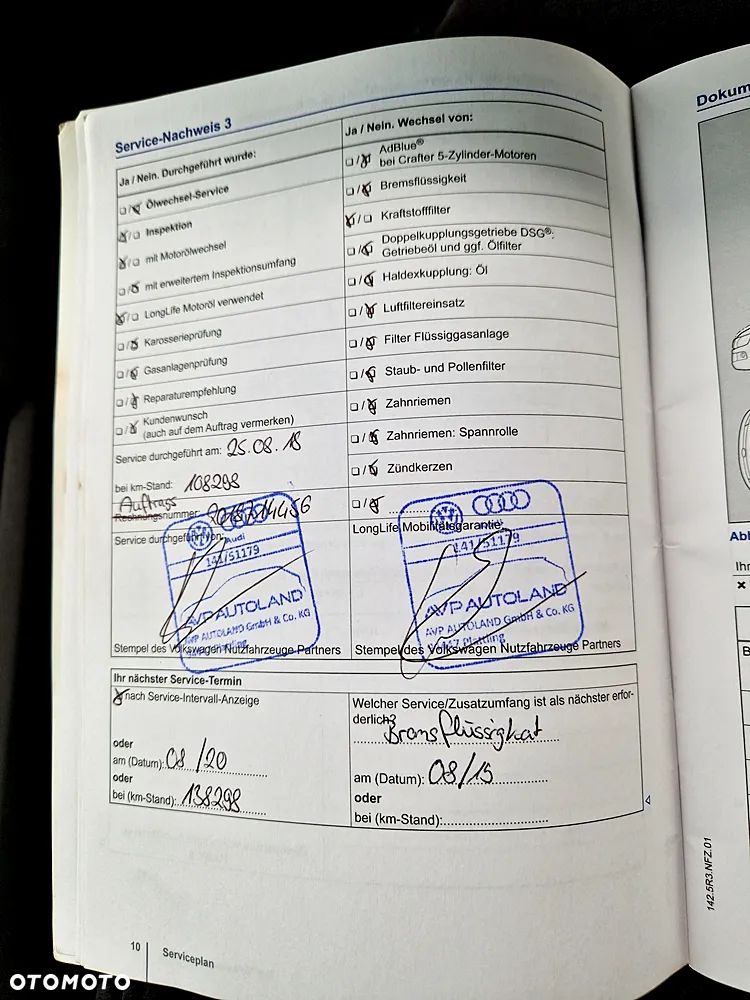 Dokum
Service-Nachweis 3
Ja / Nein. Durchgeführt wurde:
Ölwechsel-Service
Inspektion
mit Motorölwechsel
mit erweitertem Inspektionsumfang
LongLife Motoröl verwendet
Karosserieprüfung
Gasanlagenprüfung
Reparaturempfehlung
Kundenwunsch
(auch auf dem Auftrag vermerken)
Service durchgeführt am: 25.08.18
bei km-Stand: 108298
Auftrags
Rechnungsnummer
Service durchgeführt von:
Audi
141/51179
AVP AUTOLAND
AVP AUTOLAND GmbH & Co. KG
Stempel des Volkswagen Nutzfahrzeuge Partners
Ja / Nein. Wechsel von:
AdBlue®
bei Crafter 5-Zylinder-Motoren
Bremsflüssigkeit
Kraftstofffilter
Doppelkupplungsgetriebe DSG®:
Getriebeöl und ggf. Ölfilter
Haldexkupplung: Öl
Luftfiltereinsatz
Filter Flüssiggasanlage
Staub- und Pollenfilter
Zahnriemen
Zahnriemen: Spannrolle
Zündkerzen
LongLife Mobilitätsgarantie:
141/51179
AVP AUTOLAND
AVP AUTOLAND GmbH & Co. KG
Plattling
Stempel des Volkswagen Nutzfahrzeuge Partners
Ihr nächster Service-Termin
nach Service-Intervall-Anzeige
oder
am (Datum): 08/20
oder
bei (km-Stand): 138298
Welcher Service/Zusatzumfang ist als nächster erfor-
derlich?
Bremsflüssigkeit
am (Datum): 08/15
oder
bei (km-Stand):
142.5R3.NFZ.01
10
Serviceplan
Ihr
OTOMOTO